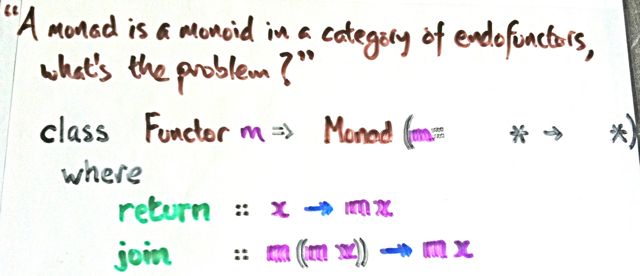 "A monad is a monoid in a category of endofunctors,
what's the problem?"
class Functor m => Monad (m :: * → *)
where
return :: x → m x
join :: m (m x) → m x